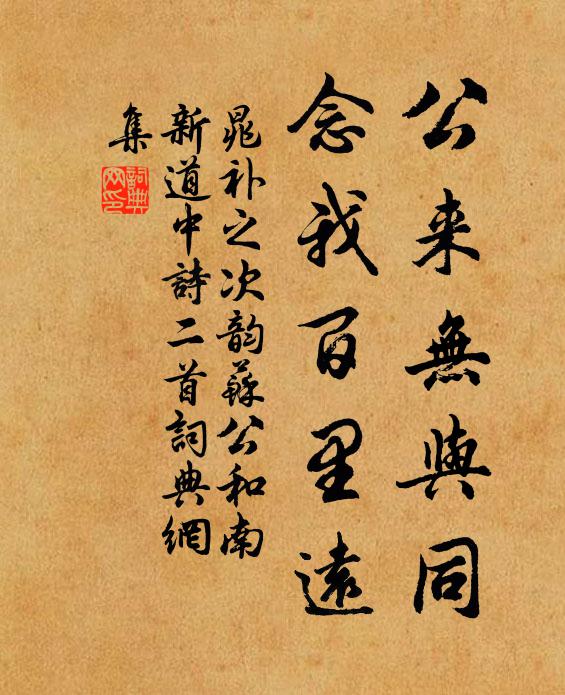 公来無與同
念我百里遠
晁补之次韵蘇公和南
新道中詩二首詞典網
集
詞典網印